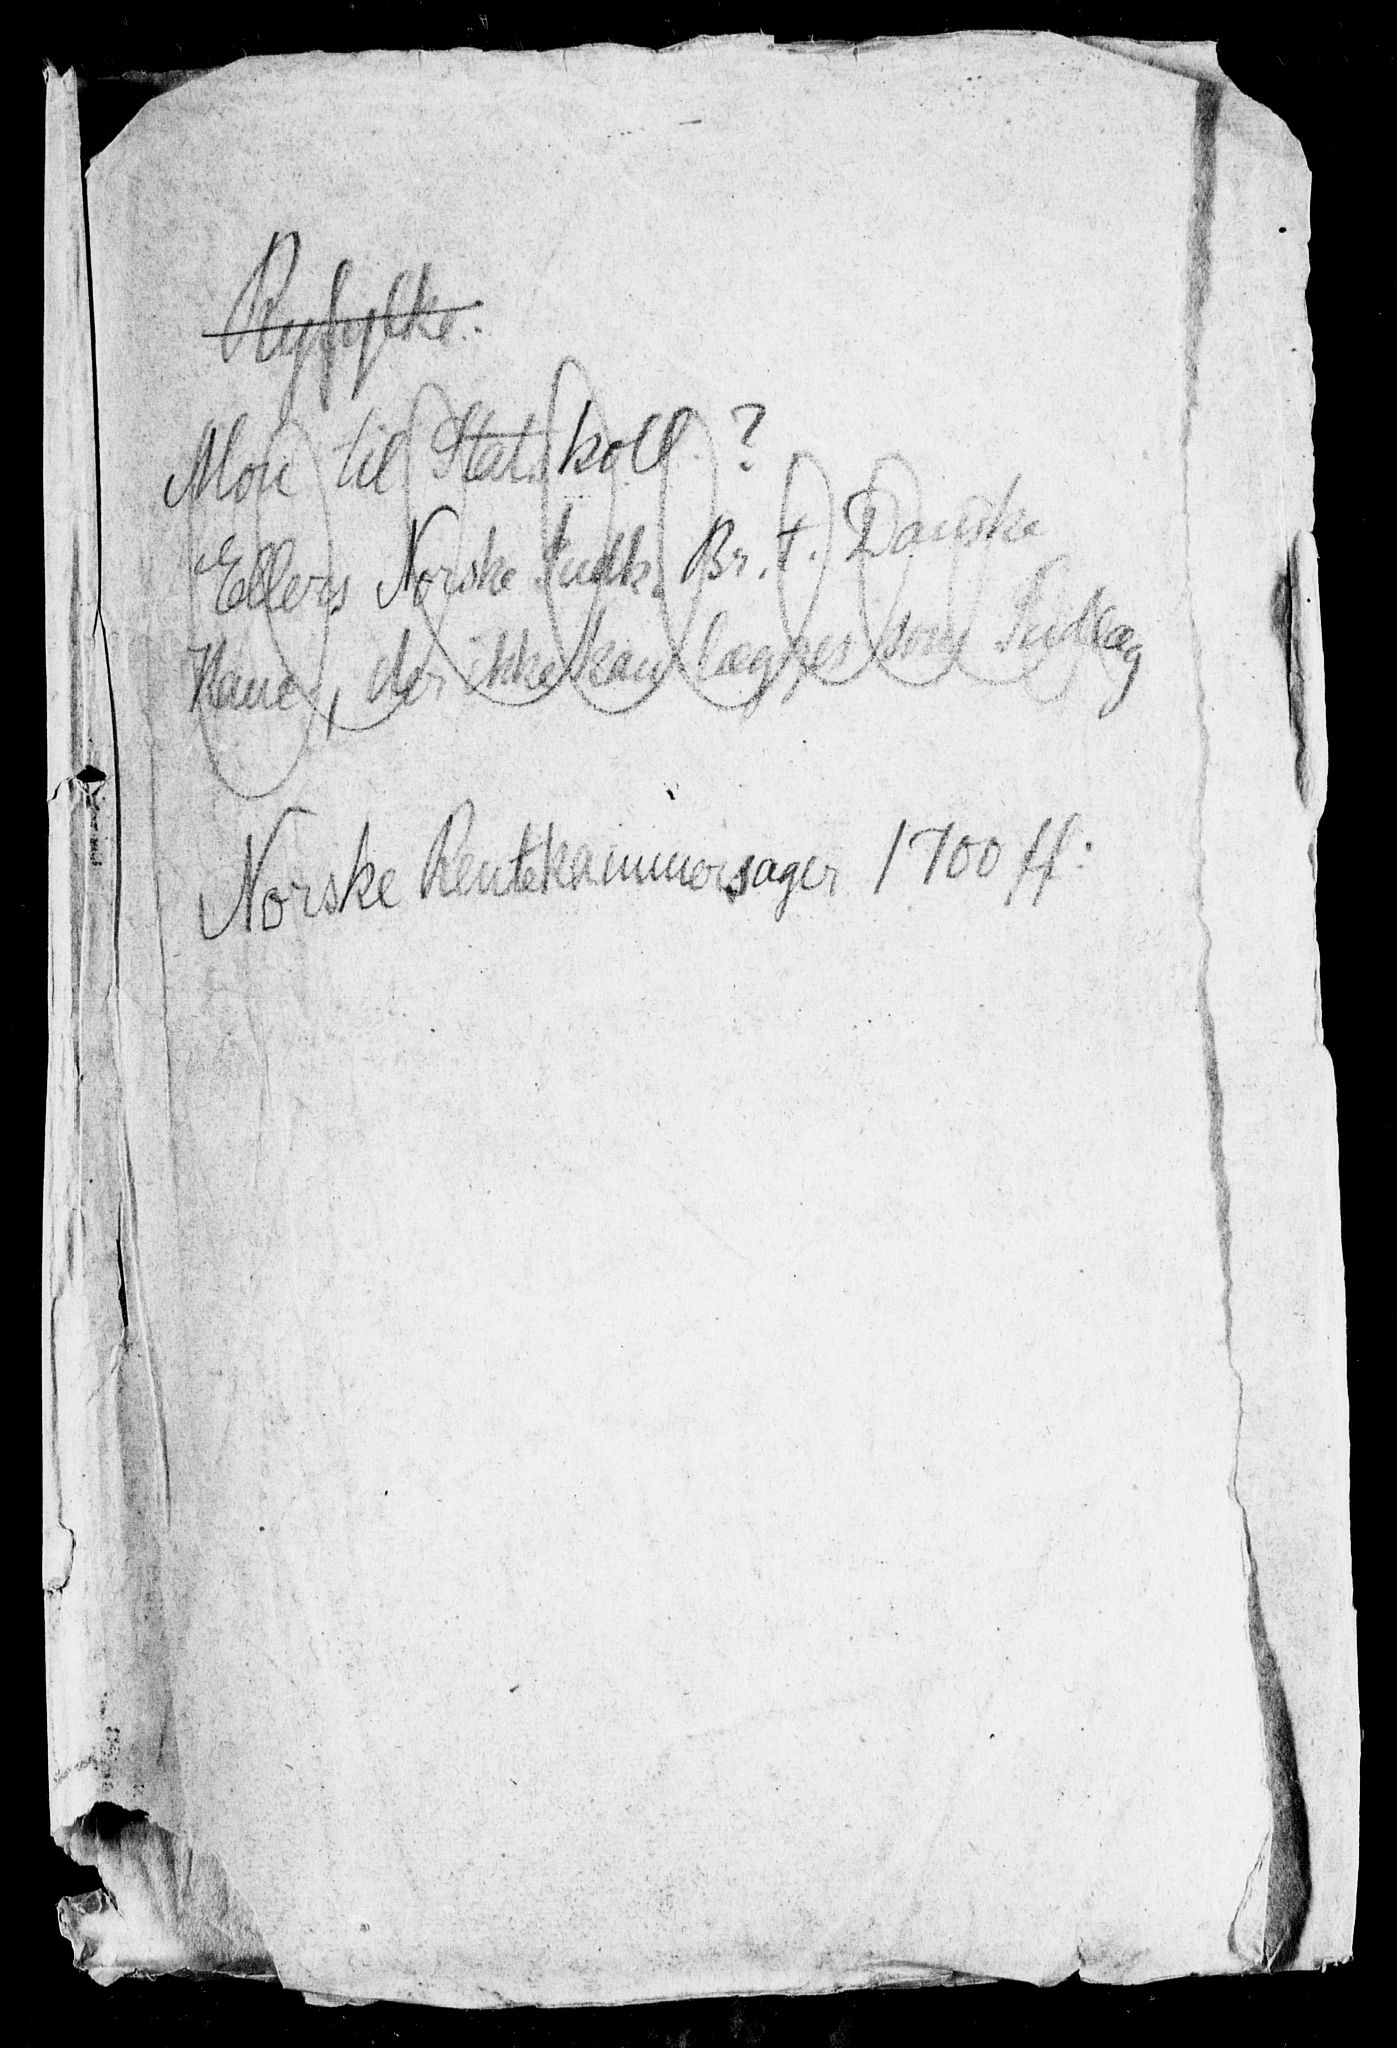 Ryfylke.
Mon til Stat. koll ?
Ellers Norske Indk. Br. t. Danske
Kanc., der ikke kan lægges som Indlæg
Norske Rentekammersager 1700 ff: